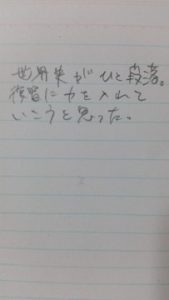 世界史がひと段落。
復習に力を入れて
いこうと思った。